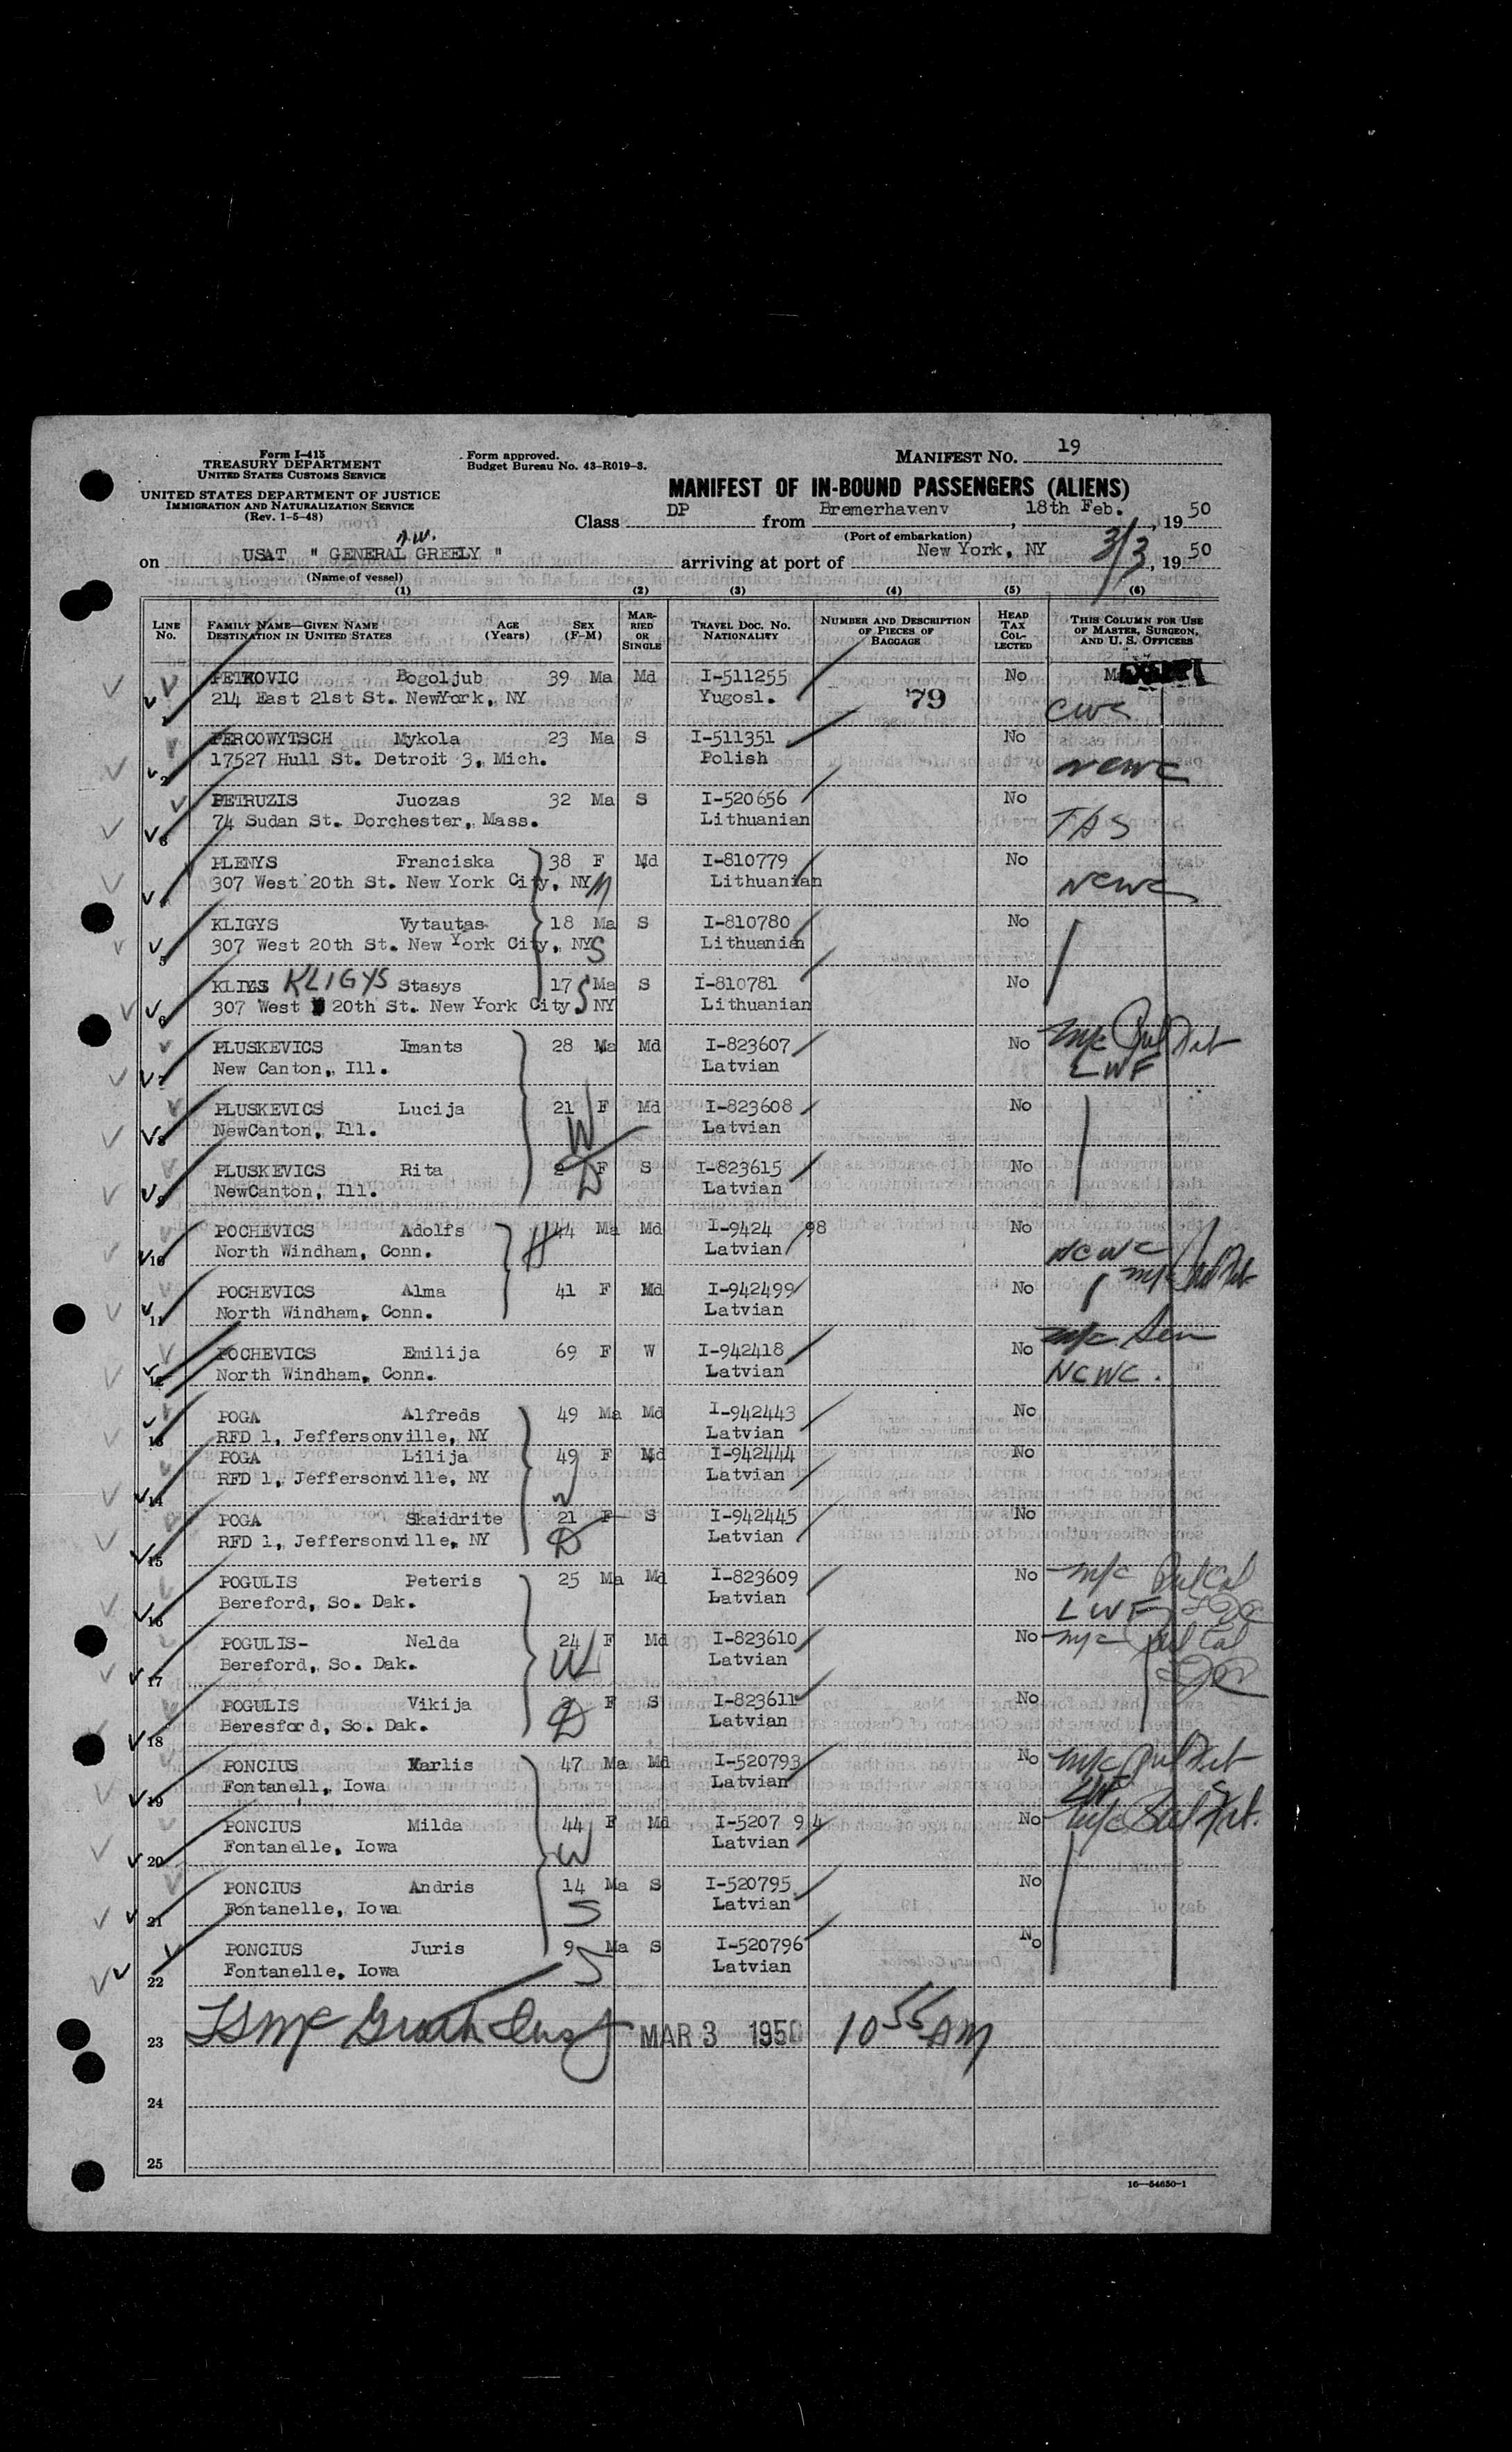 Form I-415
TREASURY DEPARTMENT
UNITED STATES CUSTOMS SERVICE
Form approved.
Budget Bureau No. 43-R019-3.
MANIFEST NO. 19
UNITED STATES DEPARTMENT OF JUSTICE
IMMIGRATION AND NATURALIZATION SERVICE
(Rev. 1-5-48)
MANIFEST OF IN-BOUND PASSENGERS (ALIENS)
Class DP from Bremerhavenv, 18th Feb., 1950
(Port of embarkation)
A.W.
on USAT " GENERAL GREELY " arriving at port of New York, NY 3/3, 1950
(Name of vessel)
(1) (2) (3) (4) (5) (6)
LINE No. FAMILY NAME—GIVEN NAME DESTINATION IN UNITED STATES AGE (Years) SEX (F-M) MARRIED OR SINGLE TRAVEL DOC. NO. NATIONALITY NUMBER AND DESCRIPTION OF PIECES OF BAGGAGE HEAD TAX COLLECTED THIS COLUMN FOR USE OF MASTER, SURGEON, AND U. S. OFFICERS
PETKOVIC Bogoljub 39 Ma Md I-511255 No
214 East 21st St. NewYork, NY Yugosl. 79 CWS
PERCOWYTSCH Mykola 23 Ma S I-511351 No
2 17527 Hull St. Detroit 3, Mich. Polish NCWC
PETRUZIS Juozas 32 Ma S I-520656 No
3 74 Sudan St. Dorchester, Mass. Lithuanian TAS
PLENYS Franciska 38 F Md I-810779 No
307 West 20th St. New York City, NY M Lithuanian NCWC
KLIGYS Vytautas 18 Ma S I-810780 No
5 307 West 20th St. New York City, NY S Lithuanian
KLIGYS Stasys 17 S Ma S I-810781 No
6 307 West 20th St. New York City NY Lithuanian
PLUSKEVICS Imants 28 Ma Md I-823607 No m/c
7 New Canton, Ill. Latvian LWF
PLUSKEVICS Lucija 21 F Md I-823608 No
8 NewCanton, Ill. W Latvian
PLUSKEVICS Rita 2 F S I-823615 No
9 NewCanton, Ill. D Latvian
POCHEVICS Adolfs H 44 Ma Md I-9424 98 No
10 North Windham, Conn. Latvian NCWC
POCHEVICS Alma 41 F Md I-942499 No m/c
11 North Windham, Conn. Latvian
POCHEVICS Emilija 69 F W I-942418 No m/c Sen
12 North Windham, Conn. Latvian NCWC.
POGA Alfreds 49 Ma Md I-942443 No
13 RFD 1, Jeffersonville, NY Latvian
POGA Lilija 49 F Md I-942444 No
14 RFD 1, Jeffersonville, NY W Latvian
POGA Skaidrite 21 F S I-942445 No
15 RFD 1, Jeffersonville, NY D Latvian
POGULIS Peteris 25 Ma Md I-823609 No m/c Pul Cal
16 Bereford, So. Dak. Latvian LWF
POGULIS- Nelda 24 F Md I-823610 No m/c Pul Cal
17 Bereford, So. Dak. W Latvian
POGULIS Vikija 2 F S I-823611 No
18 Beresford, So. Dak. D Latvian
PONCIUS Karlis 47 Ma Md I-520793 No m/c
19 Fontanell, Iowa Latvian LWF
PONCIUS Milda 44 F Md I-5207 94 No m/c
20 Fontanelle, Iowa W Latvian
PONCIUS Andris 14 Ma S I-520795 No
21 Fontanelle, Iowa S Latvian
PONCIUS Juris 9 Ma S I-520796 No
22 Fontanelle, Iowa S Latvian
23 MAR 3 1950 10 55 AM
24
25
16—54650-1